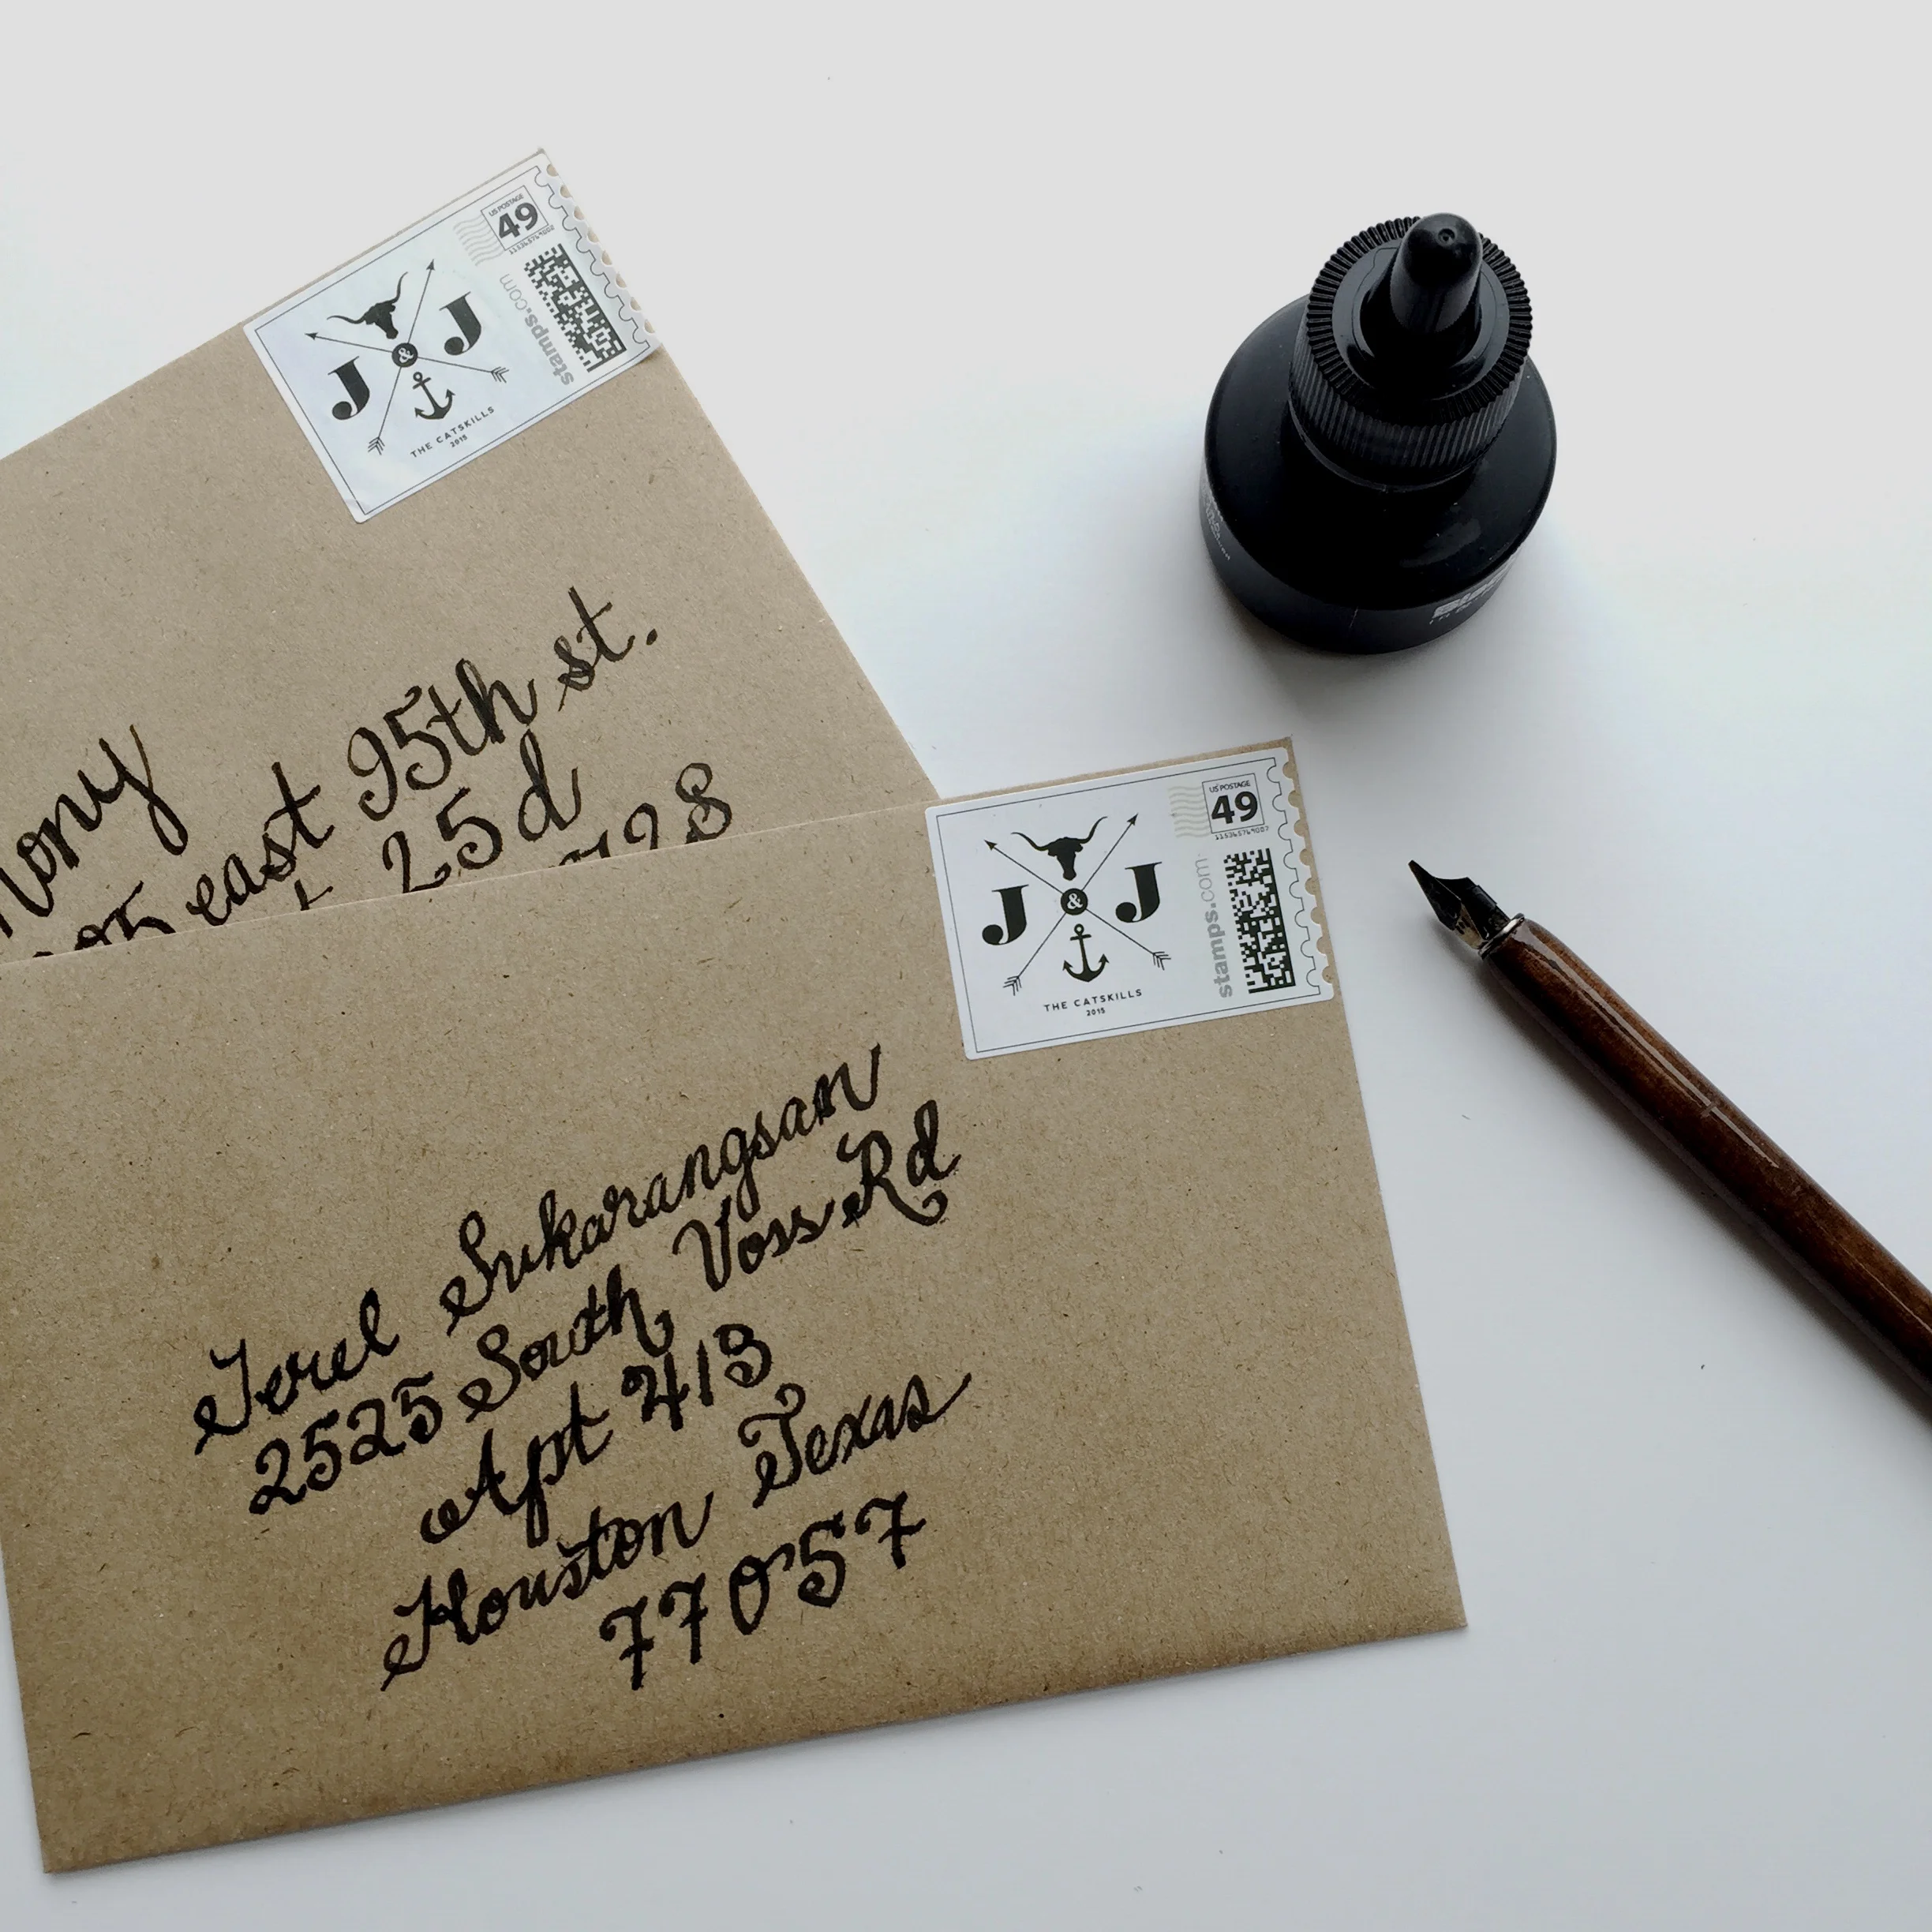 US POSTAGE
49
stamps.com
J & J
THE CATSKILLS
2015
east 95th st.
25d
US POSTAGE
49
stamps.com
J & J
THE CATSKILLS
2015
Terel Sukarangsan
2525 South Voss Rd
Apt 413
Houston Texas
77057